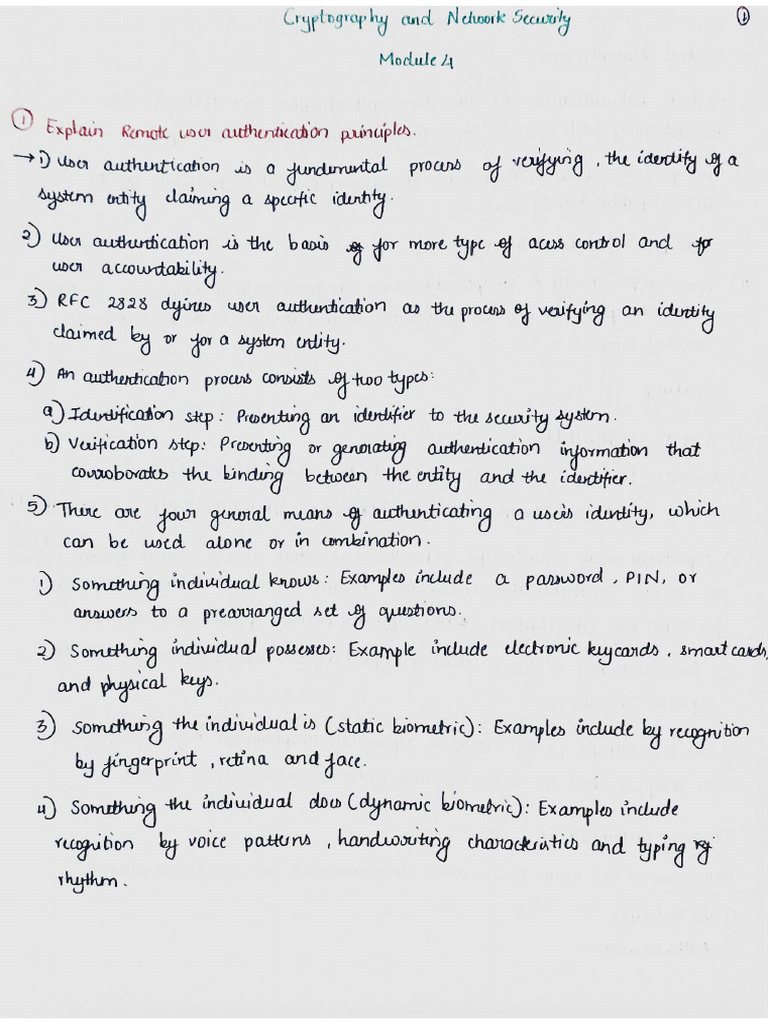 Cryptography and Network Security
1
Module 4
1 Explain Remote user authentication principles.
→ 1) User authentication is a fundemental process of verifying, the identify of a
system entity claiming a specific identity.
2) User authentication is the basis of for more type of acess control and for
user accountability.
3) RFC 2828 dyines user authentication as the process of verifying an identity
claimed by or for a system entity.
4) An authentication process consists of two types:
a) Identification step: Presenting an identifier to the security system.
b) Verification step: Presenting or generating authentication information that
corroborates the binding between the entity and the identifier.
5) There are four general means of authenticating a user's identity, which
can be used alone or in combination.
1) Something individual knows: Examples include a password, PIN, or
answers to a prearranged set of questions.
2) Something individual possesses: Example include electronic keycards, smart cards,
and physical keys.
3) Something the individual is (static biometric): Examples include by recognition
by fingerprint, retina and face.
4) Something the individual does (dynamic biometric): Examples include
recognition by voice patterns, handwriting characteristics and typing
rhythm.